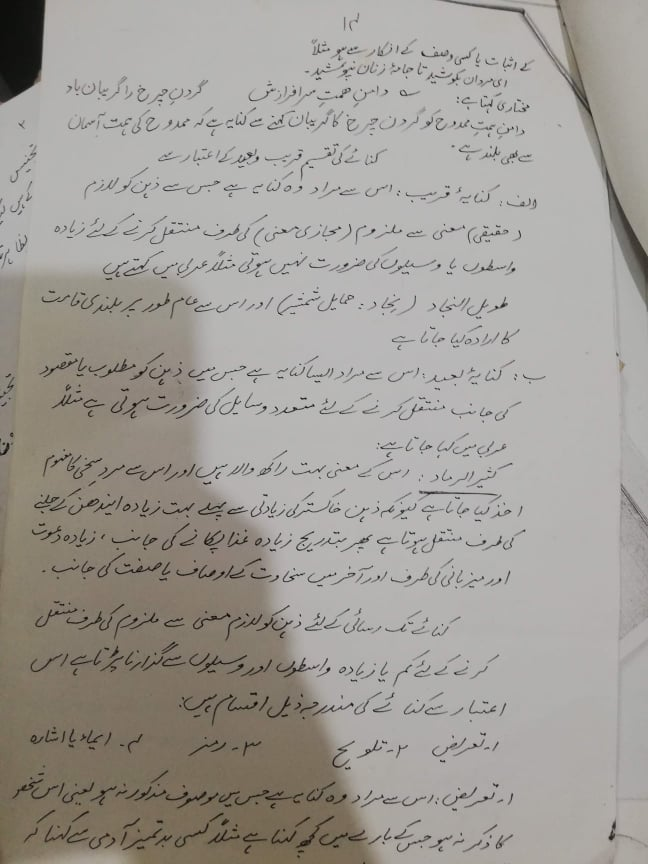 ۱۴
کے اثبات یا کسی وصف کے انکار سے ہو مثلاً
ای مردان بکوشید تا جامۂ زنان نپوشید۔
مختاری کہتا ہے: دامنِ ہمتِ سرافرازش گردنِ چرخ را گریبان باد
دامنِ ہمتِ ممدوح کو گردن چرخ کا گریبان کہنے سے کنایہ ہے کہ ممدوح کی ہمت آسمان
سے بھی بلند ہے۔
کنائے کی تقسیم قریب و بعید کے اعتبار سے
الف: کنایۂ قریب: اس سے مراد وہ کنایہ ہے جس سے ذہن کو لازم
(حقیقی) معنی سے ملزوم (مجازی معنی) کی طرف منتقل کرنے کے لئے زیادہ
واسطوں یا وسیلوں کی ضرورت نہیں ہوتی مثلاً عربی میں کہتے ہیں
طویل النجاد (نجاد: حمایل شمشیر) اور اس سے عام طور پر بلندی قامت
کا ارادہ کیا جاتا ہے
ب: کنایۂ بعید: اس سے مراد ایسا کنایہ ہے جس میں ذہن کو مطلوب یا مقصود
کی جانب منتقل کرنے کے لئے متعدد وسایل کی ضرورت ہوتی ہے مثلاً
عربی میں کہا جاتا ہے:
کثیر الرماد: اس کے معنی بہت راکھ والا ہیں اور اس سے مرد سخی کا مفہوم
اخذ کیا جاتا ہے کیونکہ ذہن خاکستر کی زیادتی سے پہلے بہت زیادہ ایندھن کے جلنے
کی طرف منتقل ہوتا ہے پھر بتدریج زیادہ غذا پکانے کی جانب، زیادہ دعوت
اور میزبانی کی طرف اور آخر میں سخاوت کے اوصاف یا صفت کی جانب۔
کنائے تک رسائی کے لئے ذہن کو لازم معنی سے ملزوم کی طرف منتقل
کرنے کے لئے کم یا زیادہ واسطوں اور وسیلوں سے گذارنا پڑتا ہے اس
اعتبار سے کنائے کی مندرجہ ذیل اقسام ہیں:
۱۔ تعریض ۲۔ تلویح ۳۔ رمز ۴۔ ایماء یا اشارہ
۱۔ تعریض: اس سے مراد وہ کنایہ ہے جس میں موصوف مذکور نہ ہو یعنی اس شخص
کا ذکر نہ ہو جس کے بارے میں کچھ کہنا ہے مثلاً کسی بدتمیز آدمی سے کہنا کہ